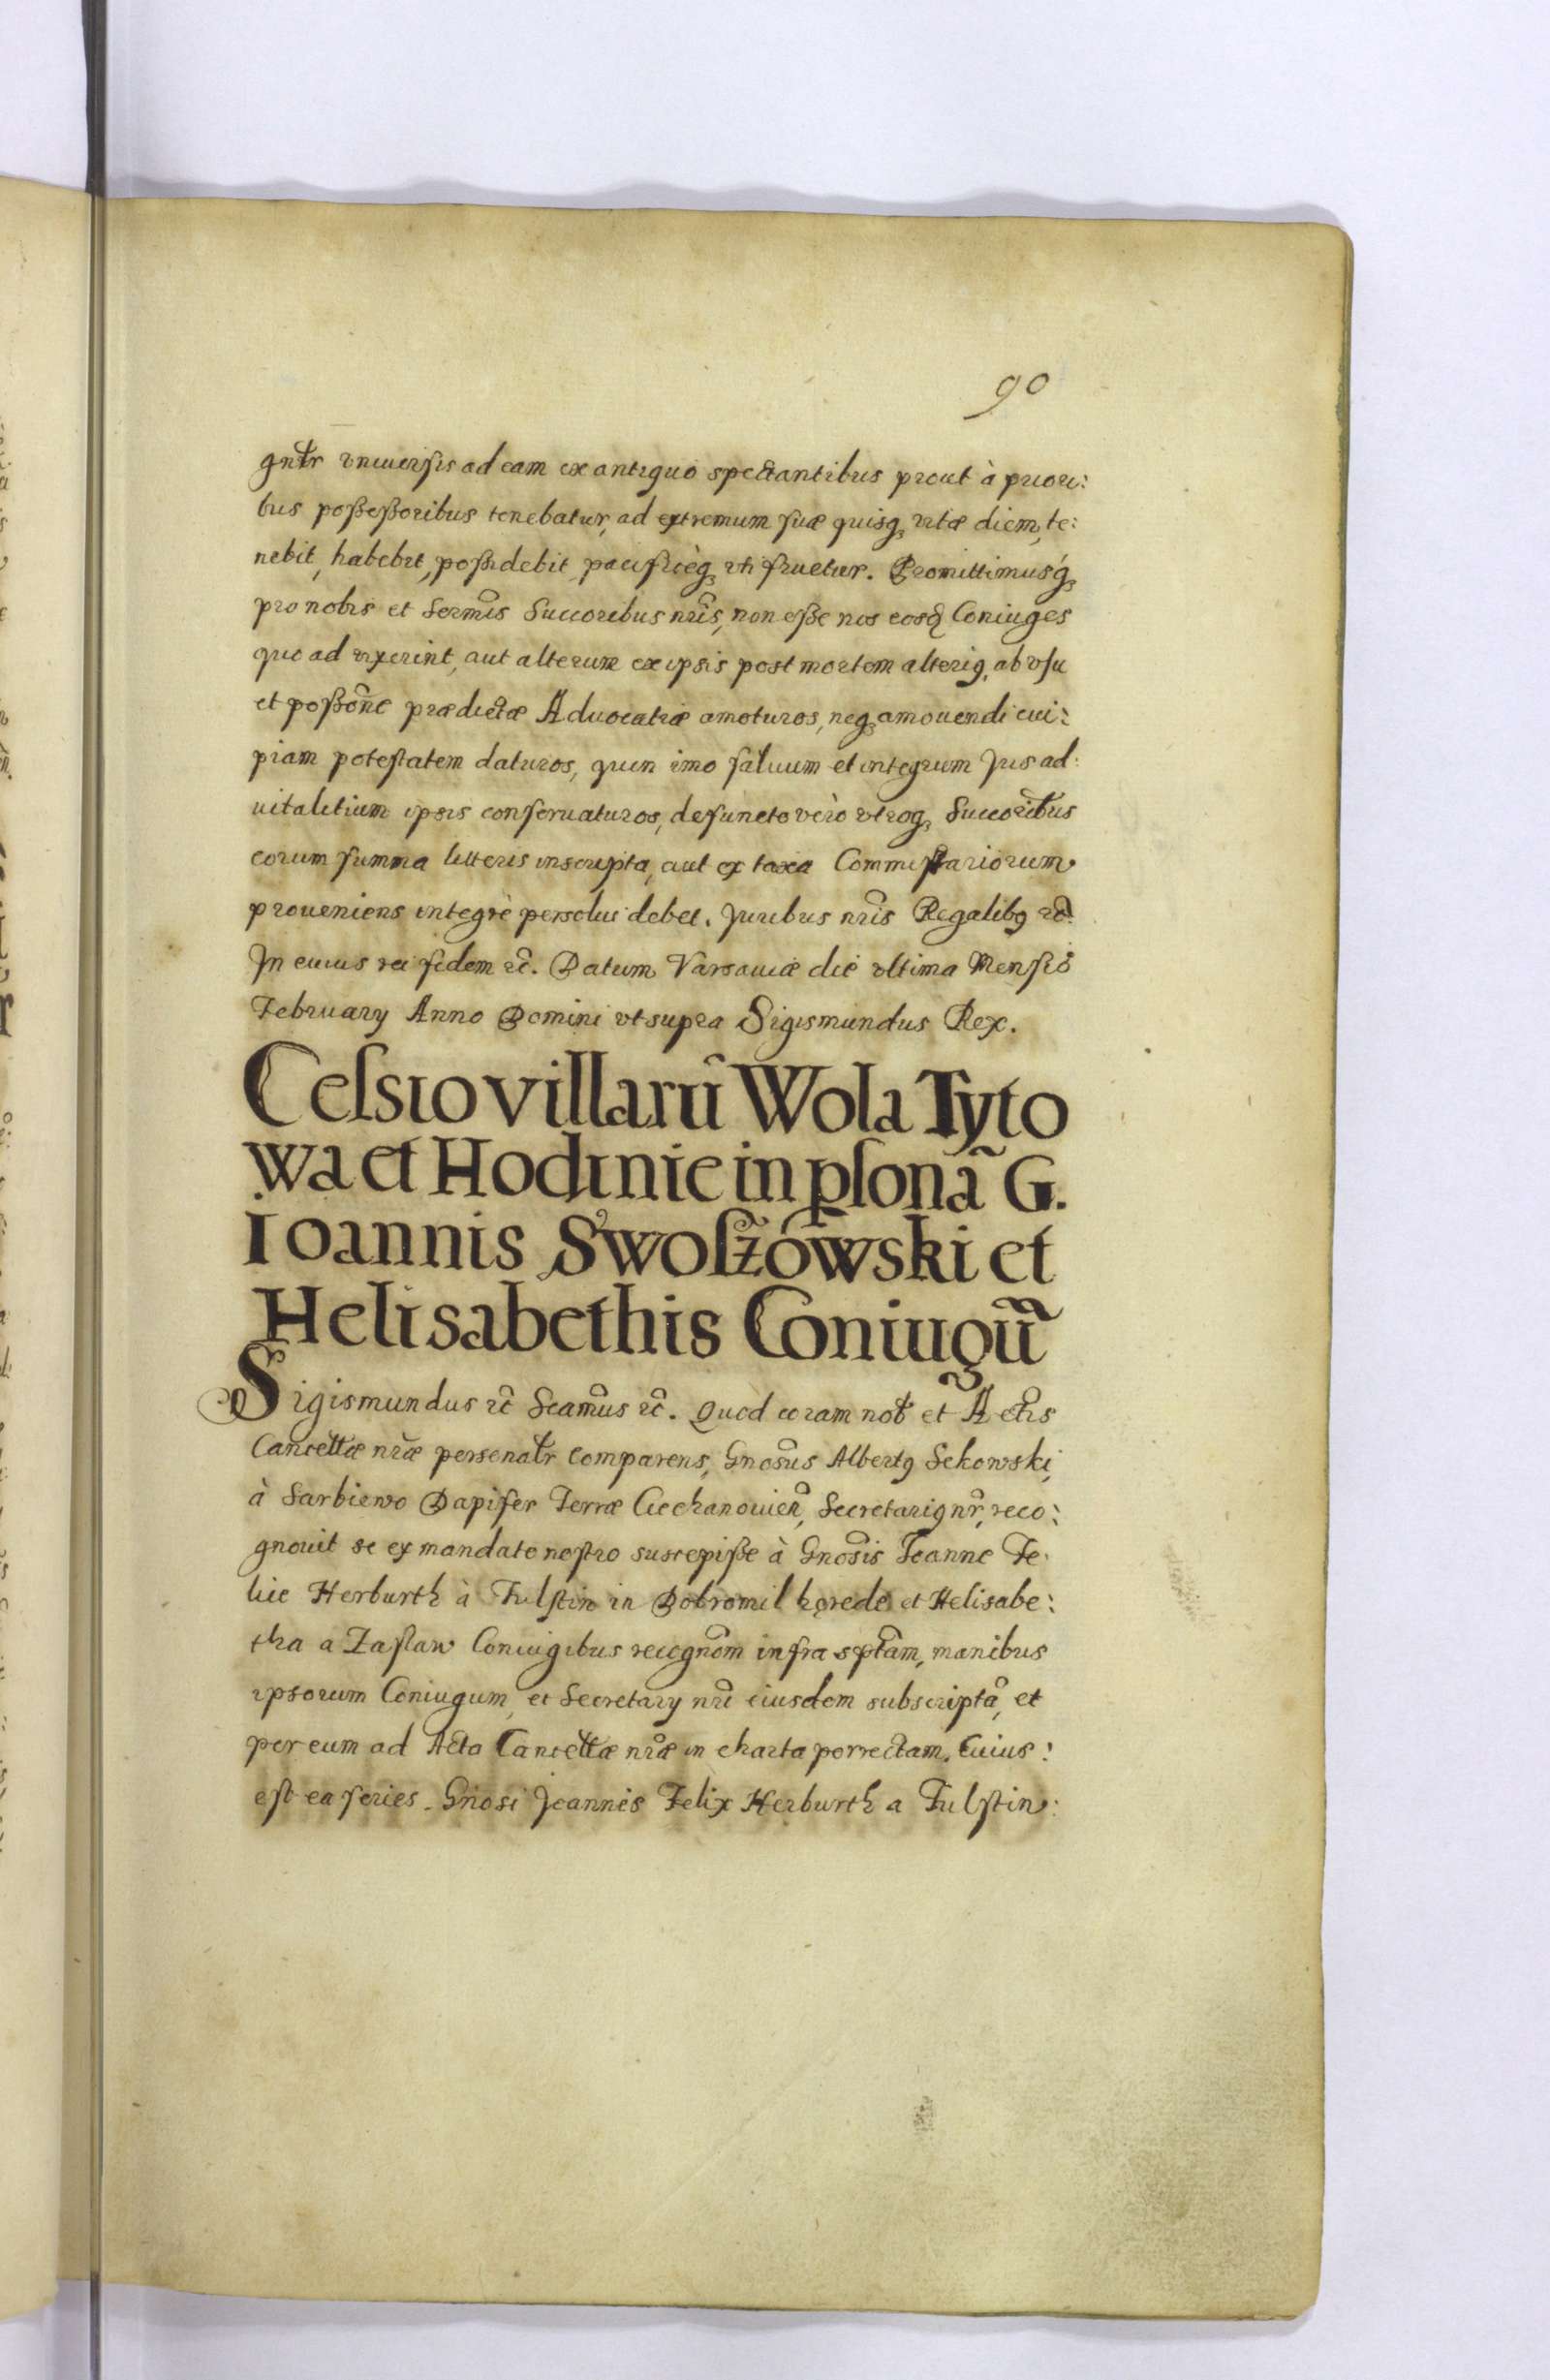 90
gnl̃r vniuersis ad eam ex antiquo spectantibus prout à priori:
bus possessoribus tenebatur, ad extremum suæ quisq₃ vitæ diem, te:
nebit, habebit, possidebit, pacificèq₃ vti fruetur. Promittimusq́₃
pro nobis et Sermĩs Succoribus nr̃is, non esse nos eosd̃ Coniuges
quo ad vixerint, aut alterum ex ipsis post mortem alteriꝰ, ab vsu
et possõne prædictæ Aduocatiæ amoturos, neq₃ amouendi cui:
piam potestatem daturos, quin imo saluum et integrum Jus ad:
uitalitium ipsis conseruaturos, defuncto verò vtroq₃ Succoribus
eorum summa litteris inscripta, aut ex taxa Commissariorum
proueniens integrè persolui debet. Juribus nr̃is Regalibꝰ ꝛc̃.
In cuius rei fidem ꝛc̃. Datum Varsauiæ die vltima Mensis
February Anno Domini vt supra Sigismundus Rex.
Celsio villarũ Wola Tyto
wa et Hodinie in ꝑsonã G.
Ioannis Swoszowski et
Helisabethis Coniugũ
Sigismundus ꝛc̃ Scamũs ꝛc̃. Quod coram nob̃ et Actis
Cancell̃æ nr̃æ personal̃r comparens, Gnosũs Albertꝰ Sekowski,
à Sarbiewo Dapifer Terræ Ciechanouień, Secretariꝰ nr̃, reco:
gnouit se ex mandato nostro suscepisse à Gnosĩs Joanne Fe:
lice Herburth à Fulstin in Dobromil hęrede et Helisabe:
tha a Zaslaw Coniugibus recognõm infra sp̃tam, manibus
ipsorum Coniugum, et Secretary nr̃i eiusdem subscriptã, et
per eum ad Acta Cancell̃æ nr̃æ in charta porrectam. Cuius:
est ea series. Gñosi Joannes Felix Herburth a Fulstin: